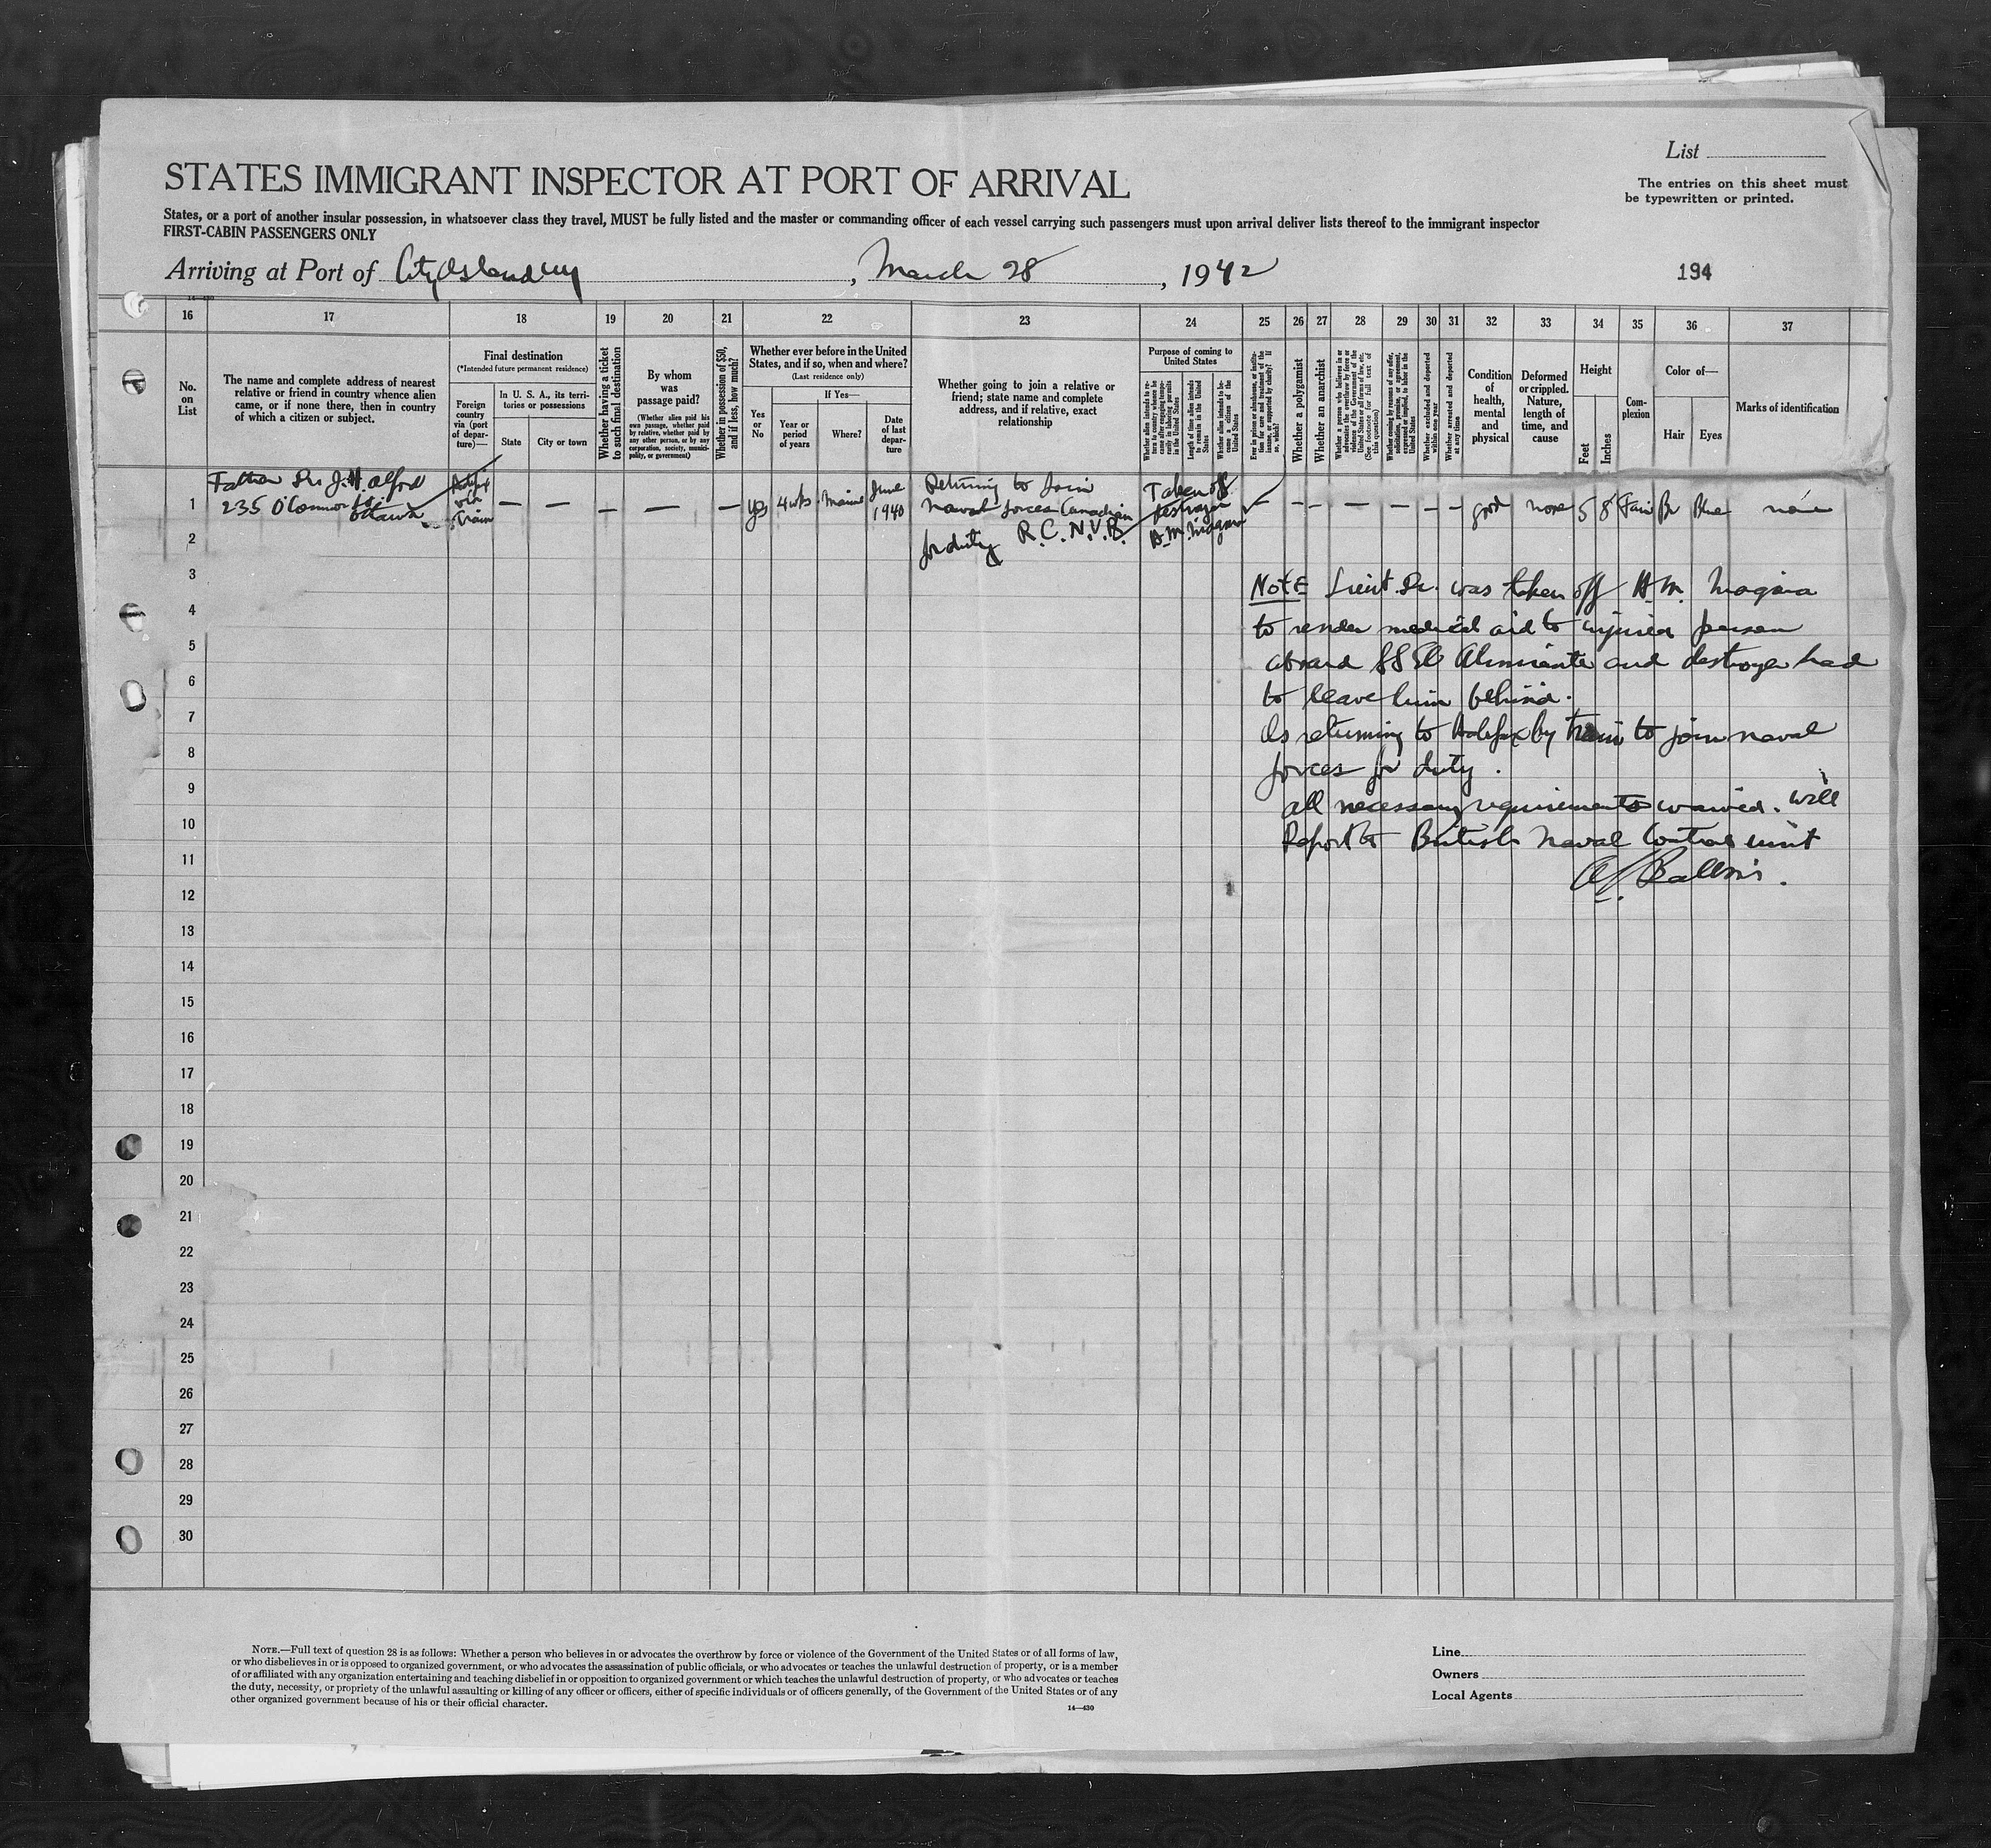 STATES IMMIGRANT INSPECTOR AT PORT OF ARRIVAL
List
The entries on this sheet must
be typewritten or printed.
States, or a port of another insular possession, in whatsoever class they travel, MUST be fully listed and the master or commanding officer of each vessel carrying such passengers must upon arrival deliver lists thereof to the immigrant inspector
FIRST-CABIN PASSENGERS ONLY
Arriving at Port of City Island NY, March 28, 1942
194
14—430
16 17 18 19 20 21 22 23 24 25 26 27 28 29 30 31 32 33 34 35 36 37
No.
on
List
The name and complete address of nearest
relative or friend in country whence alien
came, or if none there, then in country
of which a citizen or subject.
Final destination
(*Intended future permanent residence)
Foreign
country
via (port
of depar-
ture)—
In U. S. A., its terri-
tories or possessions
State
City or town
Whether having a ticket
to such final destination
By whom
was
passage paid?
(Whether alien paid his
own passage, whether paid
by relative, whether paid by
any other person, or by any
corporation, society, munici-
pality, or government)
Whether in possession of $50,
and if less, how much?
Whether ever before in the United
States, and if so, when and where?
(Last residence only)
Yes
or
No
If Yes—
Year or
period
of years
Where?
Date
of last
depar-
ture
Whether going to join a relative or
friend; state name and complete
address, and if relative, exact
relationship
Purpose of coming to
United States
Whether alien intends to re-
turn to country whence he
came after engaging tempo-
rarily in laboring pursuits
in the United States
Length of time alien intends
to remain in the United
States
Whether alien intends to be-
come a citizen of the
United States
Ever in prison or almshouse, or institu-
tion for care and treatment of the
insane, or supported by charity? If
so, which?
Whether a polygamist
Whether an anarchist
Whether a person who believes in or
advocates the overthrow by force or
violence of the Government of the
United States or all forms of law, etc.
(See footnote for full text of
this question)
Whether coming by reason of any offer,
solicitation, promise, or agreement,
expressed or implied, to labor in the
United States
Whether excluded and deported
within one year
Whether arrested and deported
at any time
Condition
of
health,
mental
and
physical
Deformed
or crippled.
Nature,
length of
time, and
cause
Height
Feet
Inches
Com-
plexion
Color of—
Hair
Eyes
Marks of identification
1 Father Dr J. H. Alford
235 O'Connor St
Ottawa
Halifax
via
Train
— — — — — yes 4 wks Maine June
1940
Returning to Join
Naval forces Canadian
for duty R.C.N.V.R.
Taken off
destroyer
H.M. Niagara
— — — — — — — good none 5 8 Fair Br Blue none
2
3
NOTE Lieut. Dr. was taken off H.M. Niagara
4
to render medical aid to injured person
5
aboard SS El Almirante and destroyer had
6
to leave him behind.
7
Is returning to Halifax by train to join naval
8
forces for duty.
9
all necessary requirements waived. Will
10
Report to British Naval Control unit
11
12
13
14
15
16
17
18
19
20
21
22
23
24
25
26
27
28
29
30
NOTE.—Full text of question 28 is as follows: Whether a person who believes in or advocates the overthrow by force or violence of the Government of the United States or of all forms of law,
or who disbelieves in or is opposed to organized government, or who advocates the assassination of public officials, or who advocates or teaches the unlawful destruction of property, or is a member
of or affiliated with any organization entertaining and teaching disbelief in or opposition to organized government or which teaches the unlawful destruction of property, or who advocates or teaches
the duty, necessity, or propriety of the unlawful assaulting or killing of any officer or officers, either of specific individuals or of officers generally, of the Government of the United States or of any
other organized government because of his or their official character.
14—430
Line
Owners
Local Agents